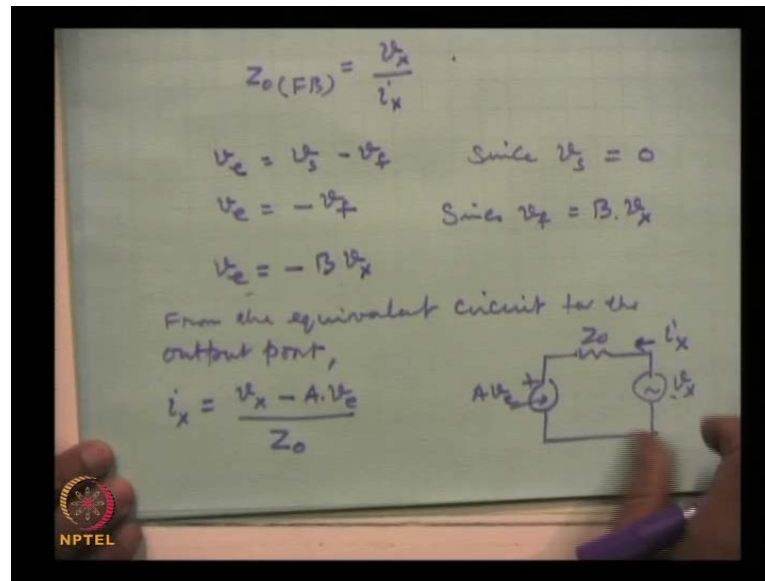 Z₀(FB) = vₓ / iₓ
vₑ = vₛ - v_f Since vₛ = 0
vₑ = - v_f Sines v_f = B. vₓ
vₑ = - B vₓ
From the equivalent circuit for the
output port,
iₓ = (vₓ - A. vₑ) / Z₀
Z₀ iₓ
Avₑ + vₓ
NPTEL